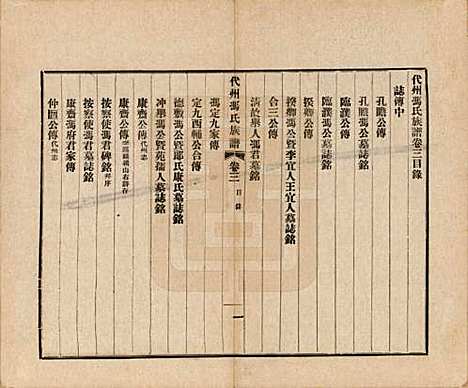 代州馮氏族譜卷三目錄
誌傳中
孔贍公傳
孔贍馮公墓誌銘
臨濮公傳
臨濮馮公墓誌銘
揆卿公傳
揆卿馮公暨李宜人王宜人墓誌銘
合三公傳
清故舉人馮君墓誌銘
代州馮氏族譜 卷三 目錄 一
馮定九家傳
定九西輔公合傳
德馮公暨郎氏康氏墓誌銘
冲舉馮公暨苑孺人墓誌銘
康齋公傳代州志
康齋公傳
按察使馮君碑銘并序
按察使馮君墓誌銘
康齋馮府君家傳
仲囬公傳代州志